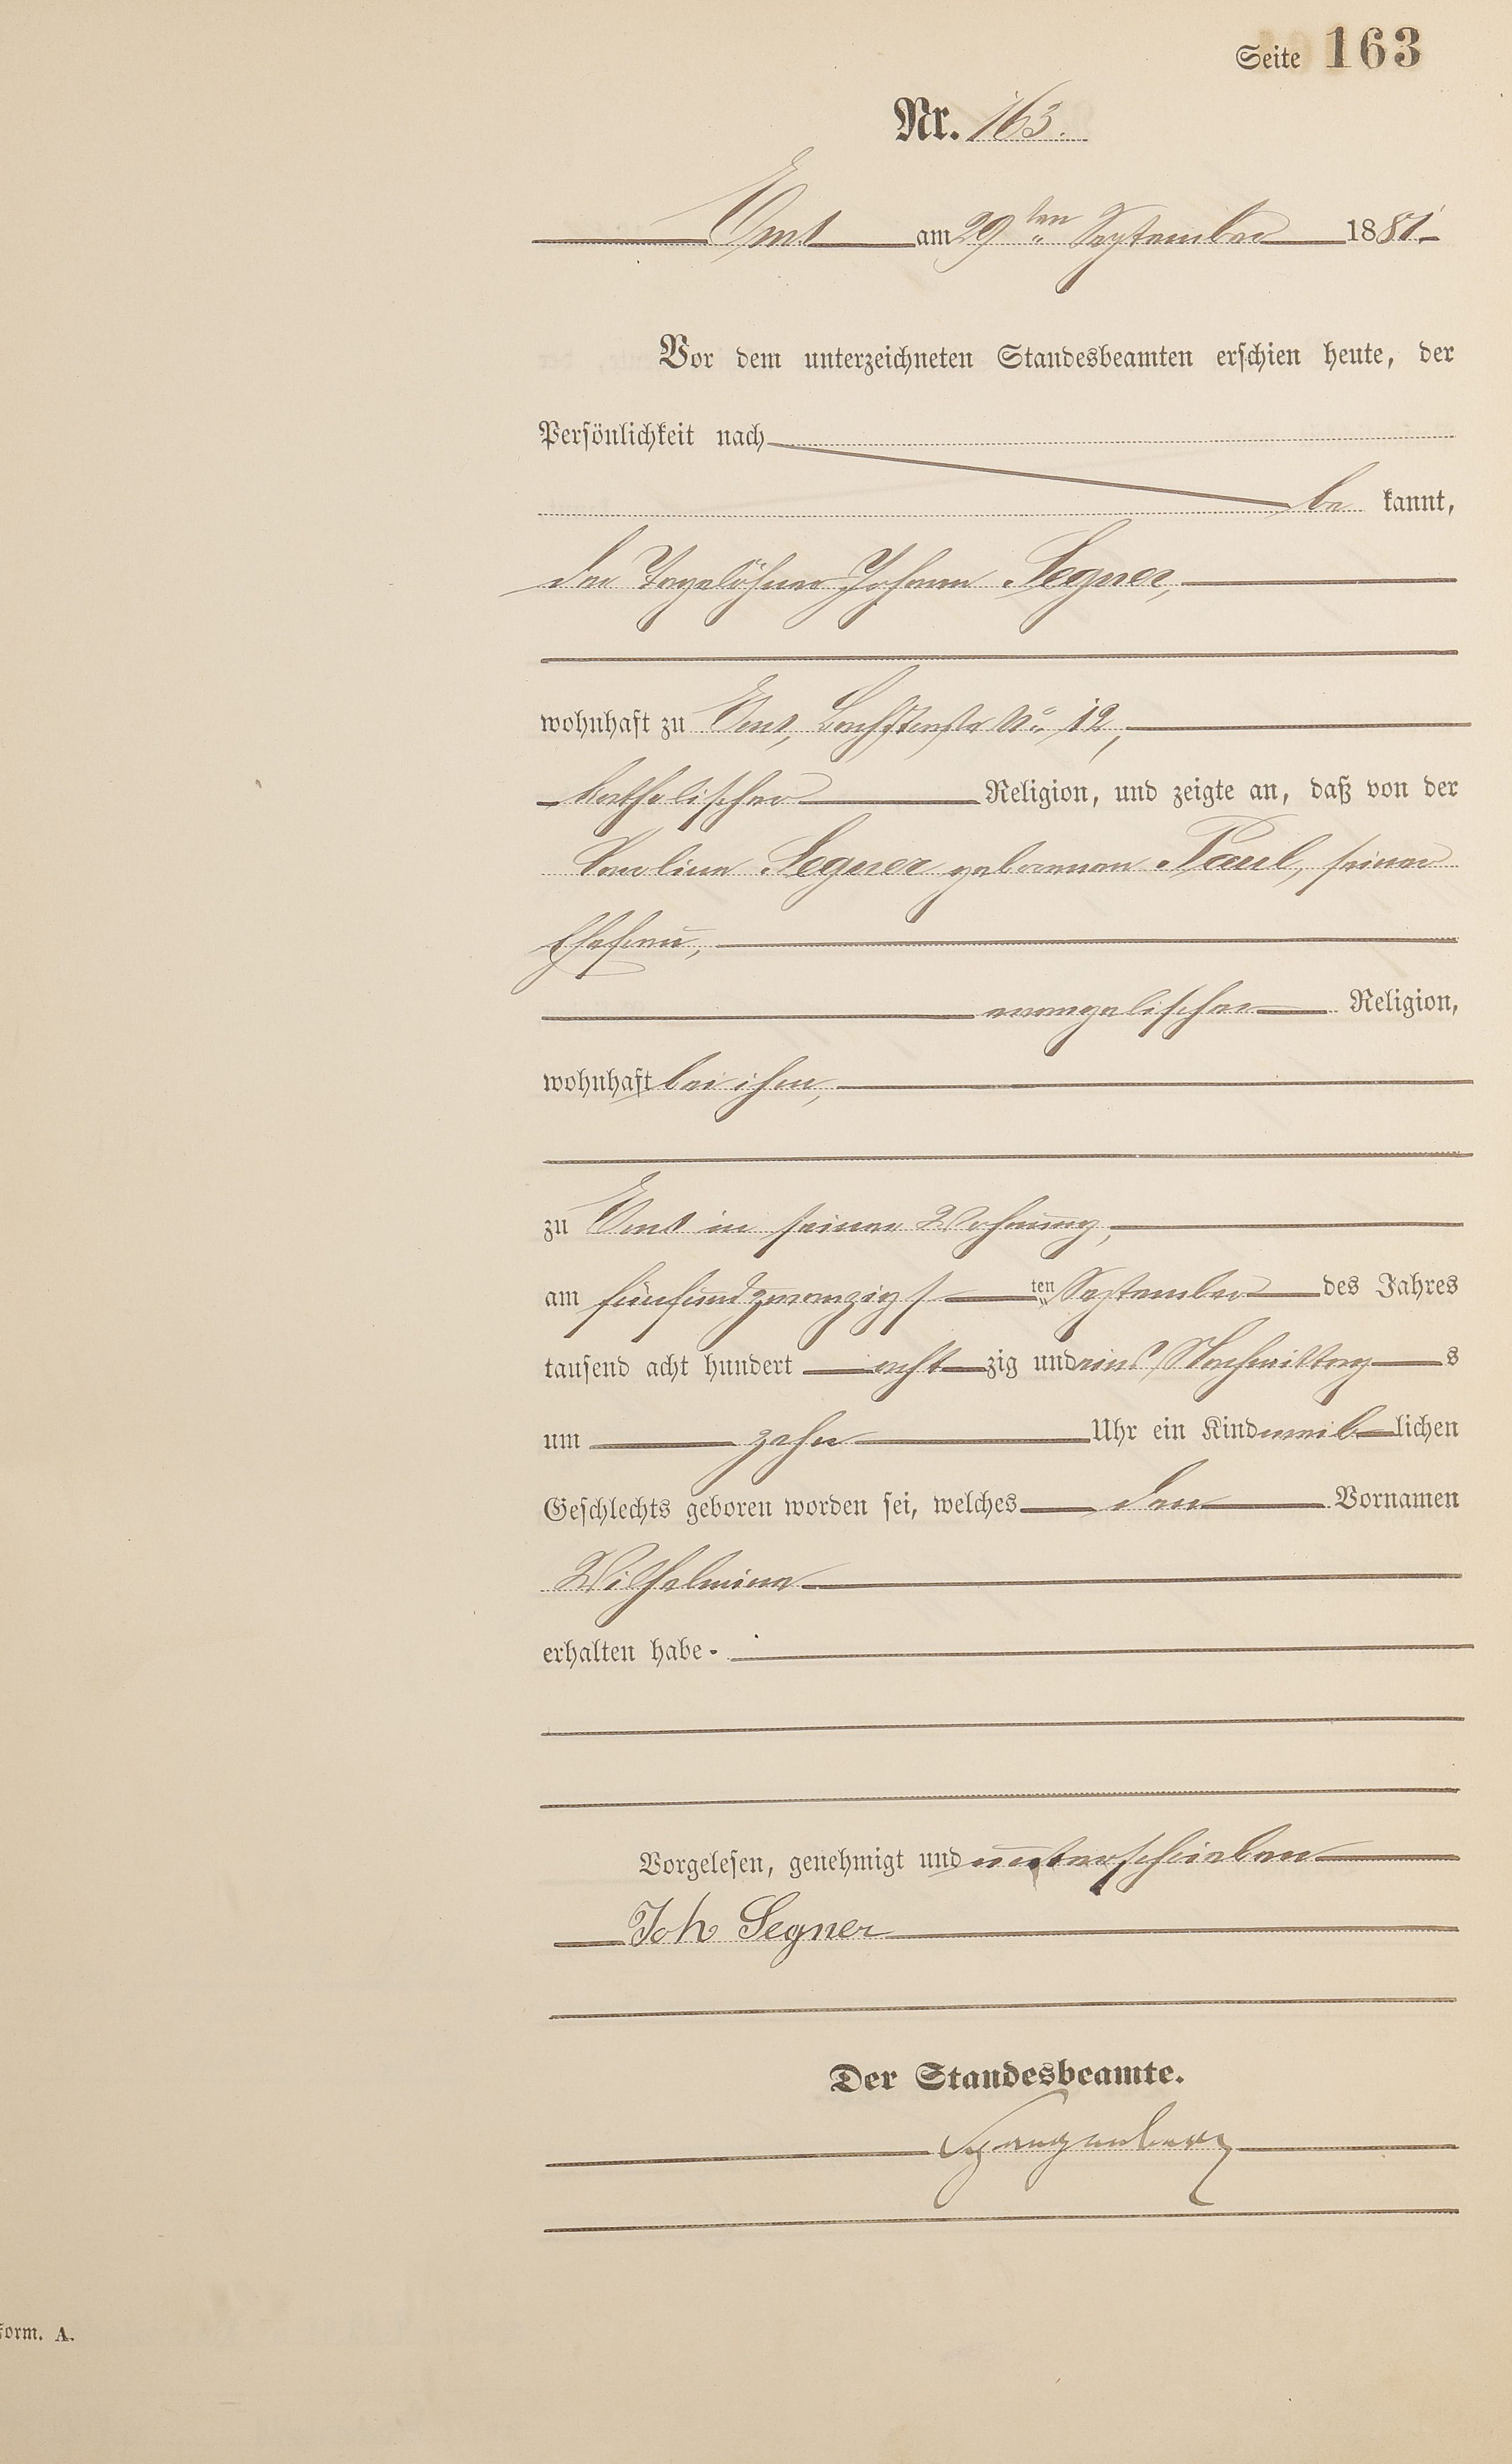 Seite 163
Nr. 163.
Ems am 29ten September 1881
Vor dem unterzeichneten Standesbeamten erschien heute, der
Persönlichkeit nach
be kannt,
der Tagelöhner Johann Segner,
wohnhaft zu Ems, No 12,
katholischer Religion, und zeigte an, daß von der
Caroline Segner geborenen Paul, seiner
Ehefrau,
evangelischer Religion,
wohnhaft bei ihm,
zu Ems in seiner Wohnung,
am fünfundzwanzigsten September des Jahres
tausend acht hundert achtzig und eins Nachmittags
um zehn Uhr ein Kind weiblichen
Geschlechts geboren worden sei, welches den Vornamen
Wilhelmine
erhalten habe.
Vorgelesen, genehmigt und unterschrieben
Joh Segner
Der Standesbeamte.
Spangenberg
Form. A.